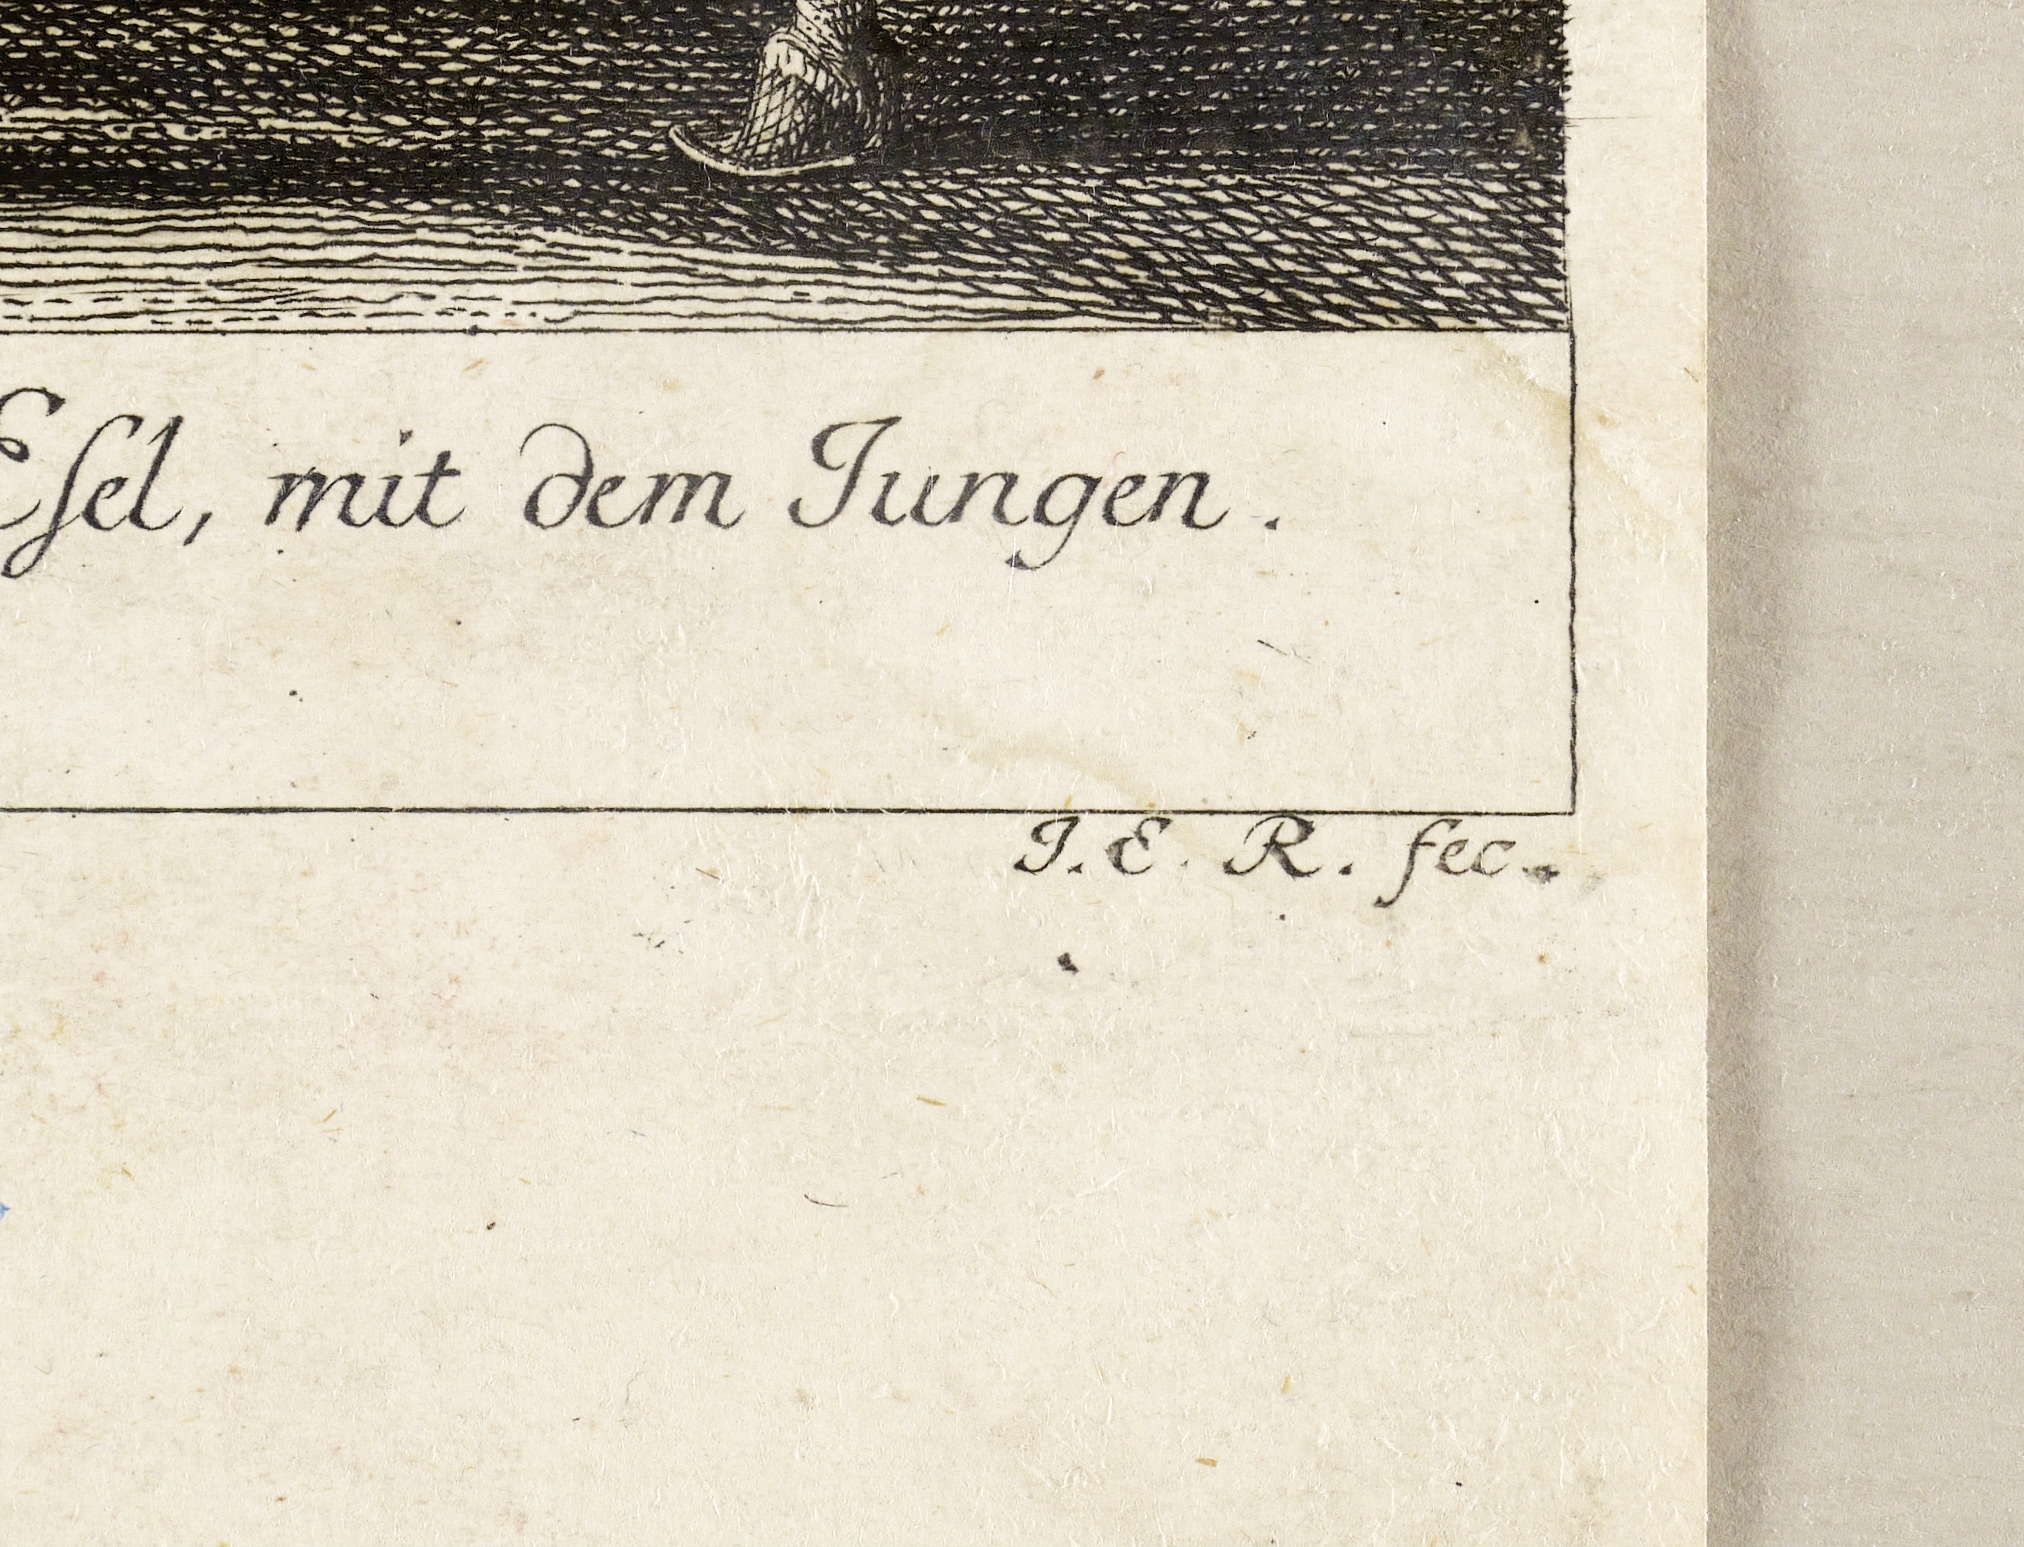 Eſel, mit dem Jungen.
J. E. R. fec.